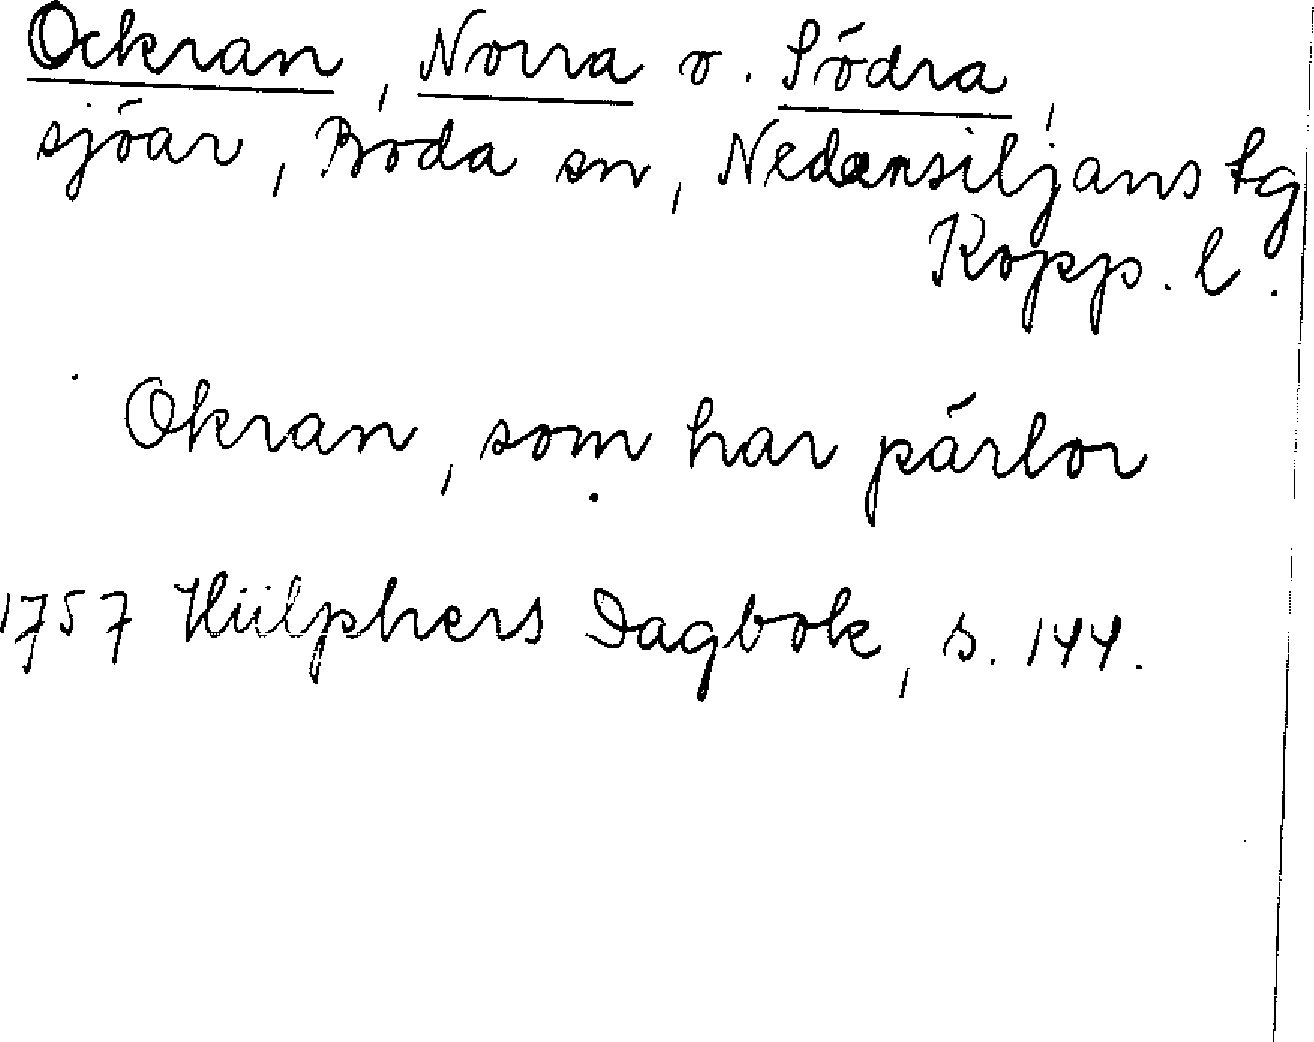 Ockran, Norra o. Södra,
sjöar, Boda sn, Nedansiljans tg
Kopp. l.
Okran, som har pärlor
1757 Hülphers Dagbok, s. 144.